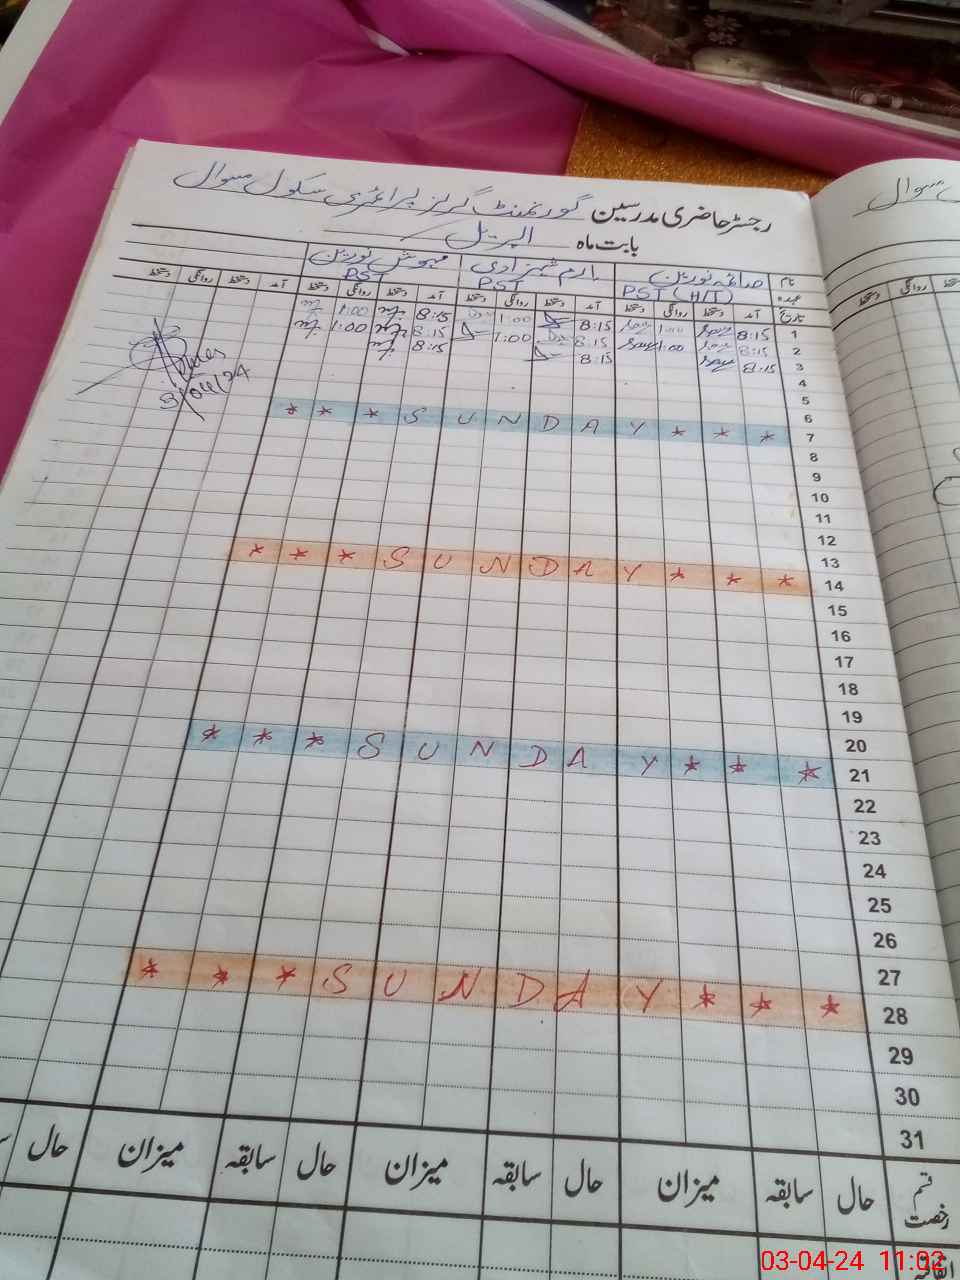 رجسٹر حاضری مدرسین گورنمنٹ گرلز پرائمری سکول سوال
بابت ماہ اپریل
نام صائمہ نورین ارم شہزادی مہوش نورین
عہدہ PST (H/T) PST PST
تاریخ آمد دستخط روانگی دستخط آمد دستخط روانگی دستخط آمد دستخط روانگی دستخط آمد دستخط روانگی دستخط
1 8:15 1:00 8:15 1:00 8:15 1:00
2 8:15 1:00 8:15 1:00 8:15 1:00
3 8:15 8:15 8:15
4
5
6
7 * * * S U N D A Y * * *
8
9
10
11
12
13
14 * * * S U N D A Y * * *
15
16
17
18
19
20
21 * * * S U N D A Y * * *
22
23
24
25
26
27
28 * * * S U N D A Y * * *
29
30
31
قسم رخصت حال سابقہ میزان حال سابقہ میزان حال سابقہ میزان حال
اتفاقیہ
3/04/24
سوال
روانگی دستخط
03-04-24 11:02